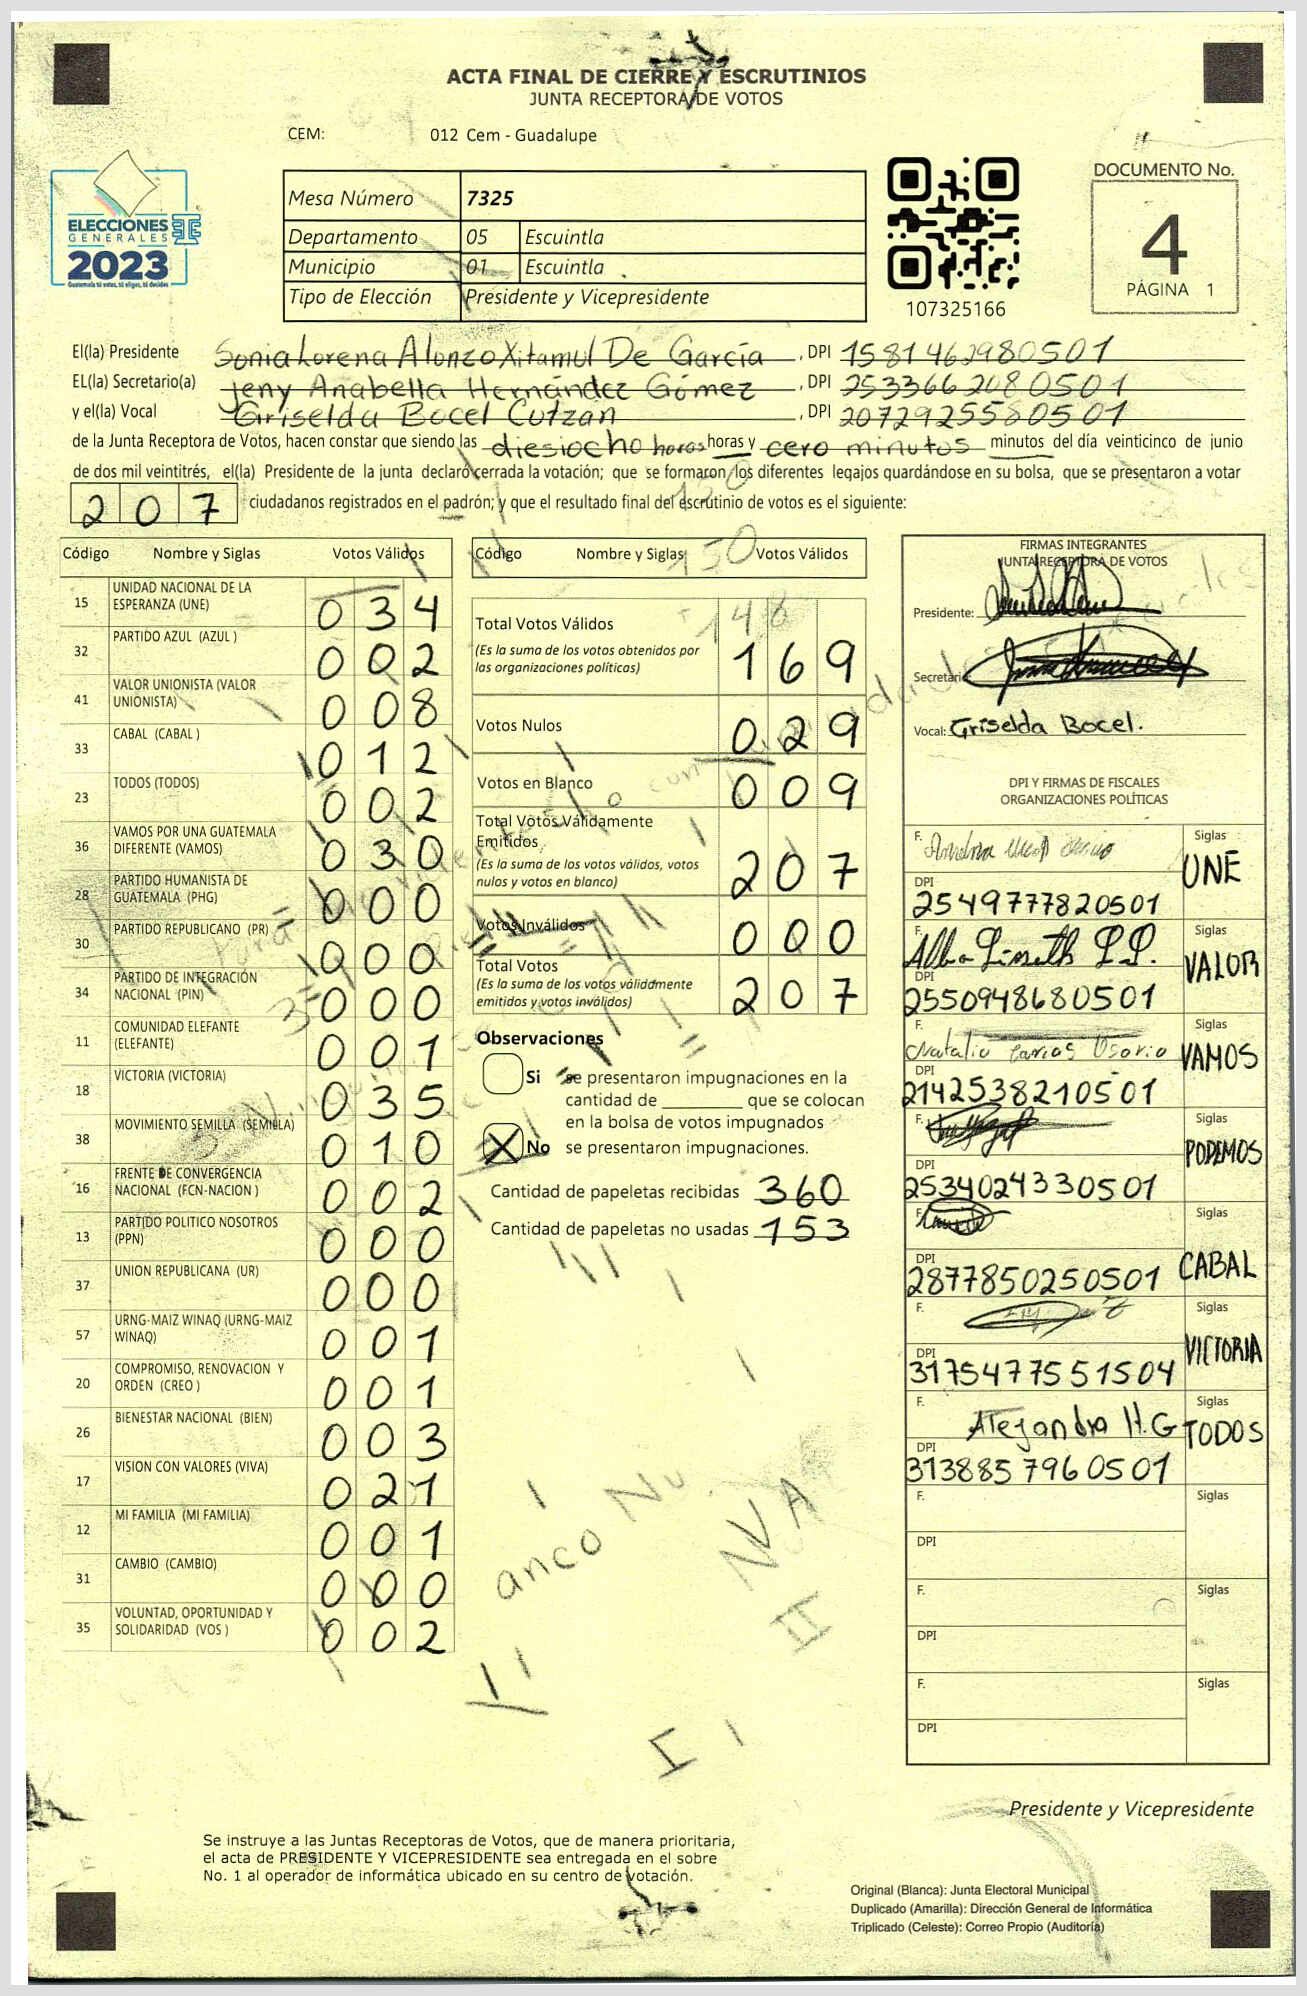 ACTA FINAL DE CIERRE Y ESCRUTINIOS
JUNTA RECEPTORA DE VOTOS
CEM: 012 Cem - Guadalupe
ELECCIONES
GENERALES
2023
Guatemala tú votas, tú eliges, tú decides
Mesa Número 7325
Departamento 05 Escuintla
Municipio 01 Escuintla
Tipo de Elección Presidente y Vicepresidente
107325166
DOCUMENTO No.
4
PÁGINA 1
El(la) Presidente Sonia Lorena Alonzo Xitamul De García, DPI 1581462980501
EL(la) Secretario(a) Jeny Anabella Hernández Gómez, DPI 2533662080501
y el(la) Vocal Griselda Bocel Cutzan, DPI 2072925580501
de la Junta Receptora de Votos, hacen constar que siendo las diesiocho horas horas y cero minutos minutos del día veinticinco de junio
de dos mil veintitrés, el(la) Presidente de la junta declaró cerrada la votación; que se formaron los diferentes legajos quardándose en su bolsa, que se presentaron a votar
207 ciudadanos registrados en el padrón; y que el resultado final del escrutinio de votos es el siguiente:
Código Nombre y Siglas Votos Válidos
15 UNIDAD NACIONAL DE LA ESPERANZA (UNE) 034
32 PARTIDO AZUL (AZUL ) 002
41 VALOR UNIONISTA (VALOR UNIONISTA) 008
33 CABAL (CABAL ) 012
23 TODOS (TODOS) 002
36 VAMOS POR UNA GUATEMALA DIFERENTE (VAMOS) 030
28 PARTIDO HUMANISTA DE GUATEMALA (PHG) 000
30 PARTIDO REPUBLICANO (PR) 000
34 PARTIDO DE INTEGRACIÓN NACIONAL (PIN) 000
11 COMUNIDAD ELEFANTE (ELEFANTE) 001
18 VICTORIA (VICTORIA) 035
38 MOVIMIENTO SEMILLA (SEMILLA) 010
16 FRENTE DE CONVERGENCIA NACIONAL (FCN-NACION ) 002
13 PARTIDO POLITICO NOSOTROS (PPN) 000
37 UNION REPUBLICANA (UR) 000
57 URNG-MAIZ WINAQ (URNG-MAIZ WINAQ) 001
20 COMPROMISO, RENOVACION Y ORDEN (CREO ) 001
26 BIENESTAR NACIONAL (BIEN) 003
17 VISION CON VALORES (VIVA) 021
12 MI FAMILIA (MI FAMILIA) 001
31 CAMBIO (CAMBIO) 000
35 VOLUNTAD, OPORTUNIDAD Y SOLIDARIDAD (VOS ) 002
Código Nombre y Siglas Votos Válidos
150
150
148
Total Votos Válidos
(Es la suma de los votos obtenidos por
las organizaciones políticas) 169
Votos Nulos 029
Votos en Blanco 009
Total Votos Válidamente
Emitidos
(Es la suma de los votos válidos, votos
nulos y votos en blanco) 207
Votos Inválidos 000
Total Votos
(Es la suma de los votos válidamente
emitidos y votos inválidos) 207
Observaciones
Si se presentaron impugnaciones en la
cantidad de ________ que se colocan
en la bolsa de votos impugnados
X No se presentaron impugnaciones.
Cantidad de papeletas recibidas 360
Cantidad de papeletas no usadas 153
anco Nu
FIRMAS INTEGRANTES
JUNTA RECEPTORA DE VOTOS
Presidente:
Secretario:
Vocal: Griselda Bocel.
DPI Y FIRMAS DE FISCALES
ORGANIZACIONES POLÍTICAS
F. Siglas UNE
DPI 2549777820501
F. Siglas VALOR
DPI 2550948680501
F. Natalio Farias Osorio Siglas VAMOS
DPI 2142538210501
F. Siglas PODEMOS
DPI 2534024330501
F. Siglas CABAL
DPI 2877850250501
F. Siglas VICTORIA
DPI 3175477551504
F. Alejandra H.G Siglas TODOS
DPI 3138857960501
F. Siglas
DPI
F. Siglas
DPI
F. Siglas
DPI
Presidente y Vicepresidente
Se instruye a las Juntas Receptoras de Votos, que de manera prioritaria,
el acta de PRESIDENTE Y VICEPRESIDENTE sea entregada en el sobre
No. 1 al operador de informática ubicado en su centro de votación.
Original (Blanca): Junta Electoral Municipal
Duplicado (Amarilla): Dirección General de Informática
Triplicado (Celeste): Correo Propio (Auditoría)